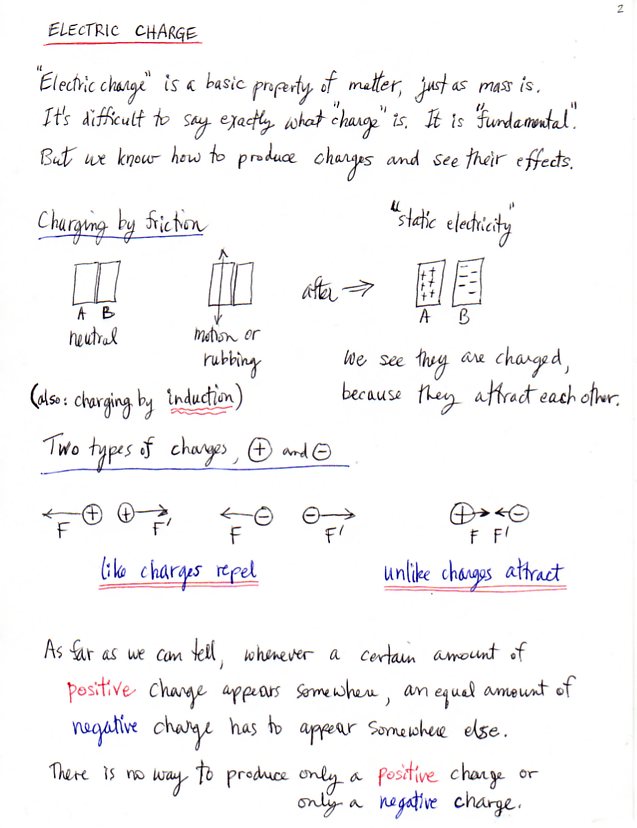 2
ELECTRIC CHARGE
"Electric charge" is a basic property of matter, just as mass is.
It's difficult to say exactly what "charge" is. It is "fundamental".
But we know how to produce charges and see their effects.
Charging by friction
"static electricity"
after ⇒
A B
neutral
motion or
rubbing
++
++
++
A
- -
- -
- -
B
We see they are charged,
because they attract each other.
(also: charging by induction)
Two types of charges, ⊕ and ⊖
← ⊕ ⊕ → ← ⊖ ⊖ → ⊕→ ←⊖
F F' F F' F F'
like charges repel unlike charges attract
As far as we can tell, whenever a certain amount of
positive charge appears somewhere, an equal amount of
negative charge has to appear somewhere else.
There is no way to produce only a positive charge or
only a negative charge.